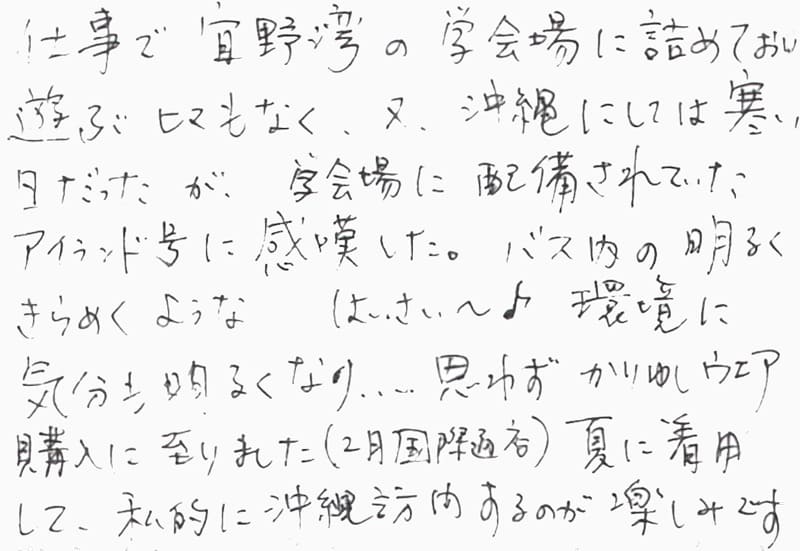 仕事で 宜野湾の 学会場に詰めており
遊ぶヒマもなく、又、沖縄にしては寒い
日だったが、学会場に配備されていた
アイランド号に感嘆した。バス内の明るく
きらめくような はいさい〜♪ 環境に
気分も明るくなり.... 思わず かりゆしウエア
購入に至りました(2月国際通右) 夏に着用
して、私的に沖縄訪問するのが楽しみです